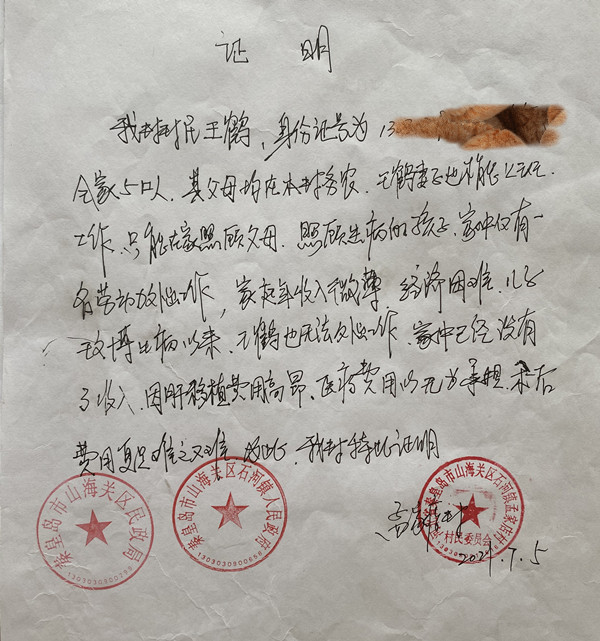 证 明
我村村民王鹤，身份证号为13
全家5口人．其父母均在本村务农．王鹤妻子也不能
工作．只能在家照顾父母．照顾生病的孩子．家中仅有一
名劳动力外出工作，家庭年收入微薄 经济困难．儿子
博生病以来．王鹤也无法外出工作．家中已经没有
了收入．因肝移植费用高昂、医疗费用 术后
费用更是难之又难 为此，我村特此证明
秦皇岛市山海关区民政局
秦皇岛市山海关区石河镇人民政府
1303030900656
秦皇岛市山海关区石河镇孟家店村
村民委员会
2024.7.5